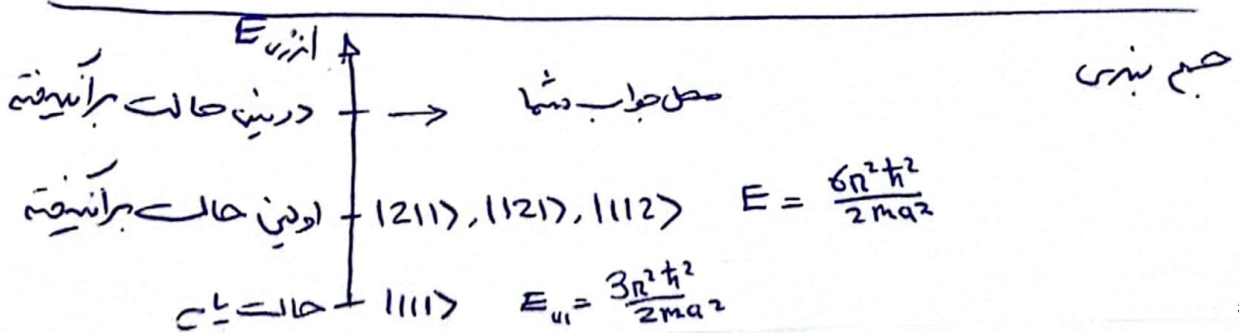 جمع بندی
انرژی E
دومین حالت برانگیخته → محل جواب شما
اولین حالت برانگیخته |211⟩, |121⟩, |112⟩ E = 6π²ħ² / 2ma²
حالت پایه |111⟩ E₁₁₁ = 3π²ħ² / 2ma²